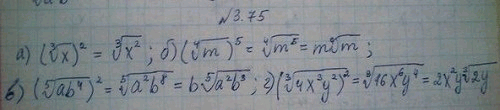 √3.75
а) (∛x)² = ∛x²; б) (⁴√m)⁵ = ⁴√m⁵ = m⁴√m;
в) (⁵√ab⁴)² = ⁵√a²b⁸ = b⁵√a²b³; г) (∛4x³y²)² = ∛16x⁶y⁴ = 2x²y∛2y